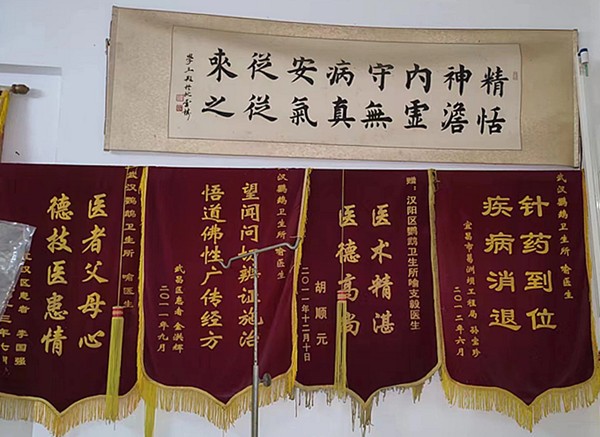 精神内守病安從來
恬澹虚無真氣從之
武汉鹦鹉卫生所 喻医生
针药到位
疾病消退
宜昌市葛洲坝工程局 孙宝珍
二〇一二年六月
赠：汉阳区鹦鹉卫生所喻支毅医生
医术精湛
医德高尚
胡顺元
二〇一一年十二月十日
汉鹦鹉卫生所 喻医生
望闻问切辨证施治
悟道佛性广传经方
武昌区患者 金洪辉
二〇一一年九月
武汉鹦鹉卫生所 喻医生
医者父母心
德技医患情
汉区患者 李国强
三年七月